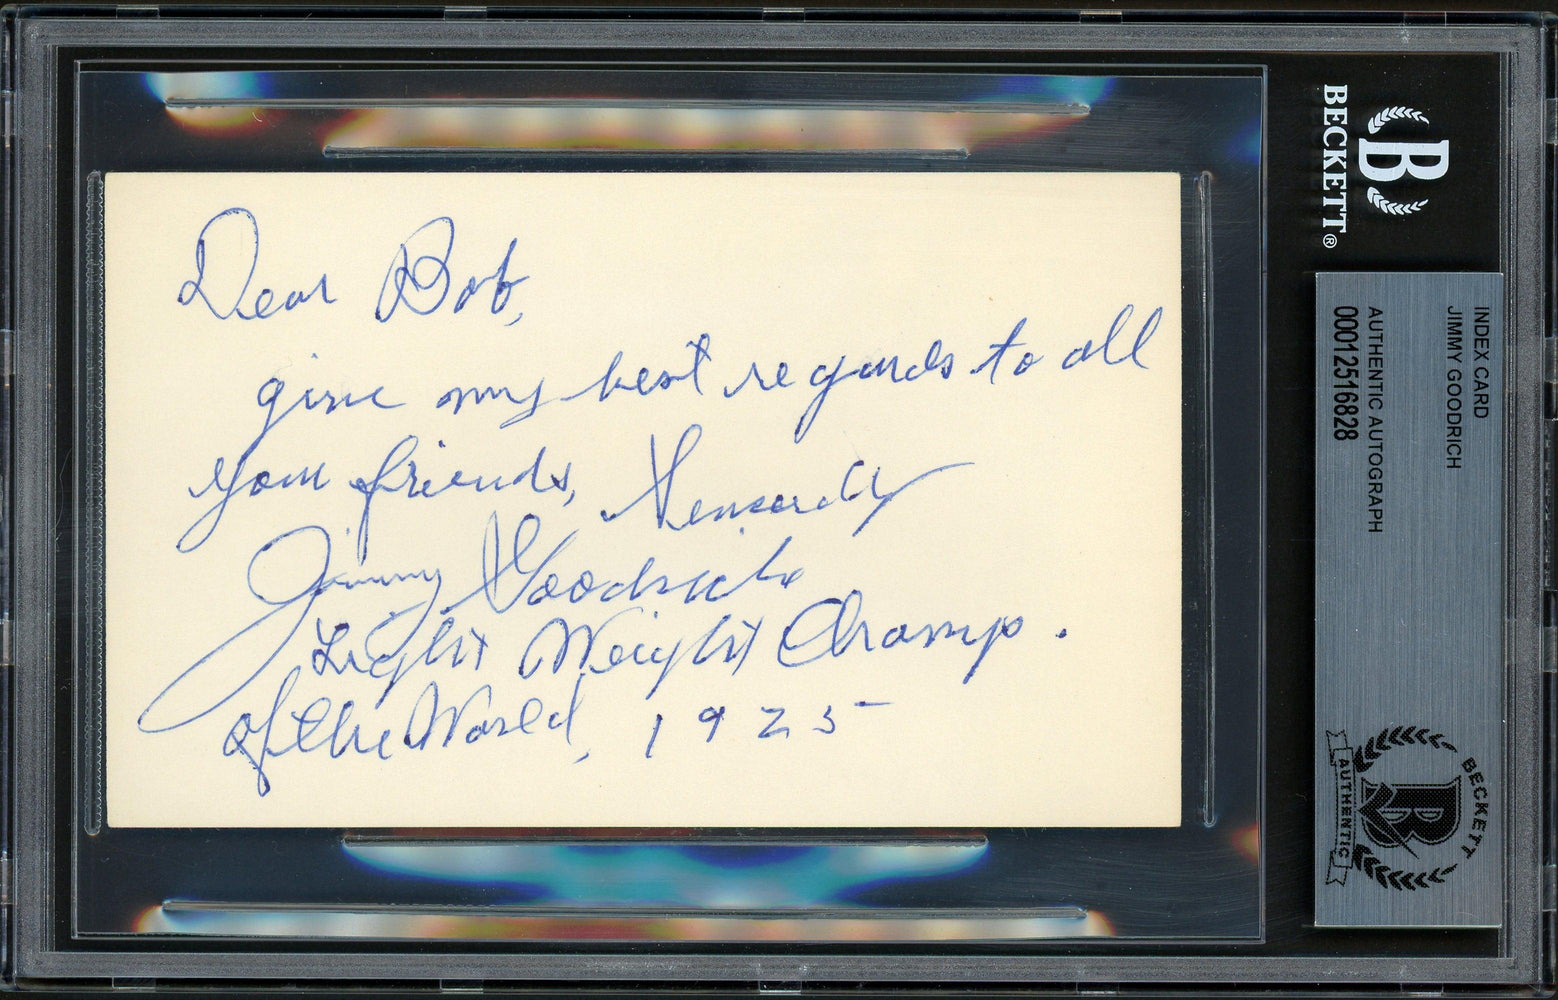 Dear Bob,
give my best regards to all
your friends, Sincerely
Jimmy Goodrich
Light Weight Champ.
of the World, 1925
B
BECKETT®
INDEX CARD
JIMMY GOODRICH
AUTHENTIC AUTOGRAPH
00012516828
BECKETT
B
AUTHENTIC